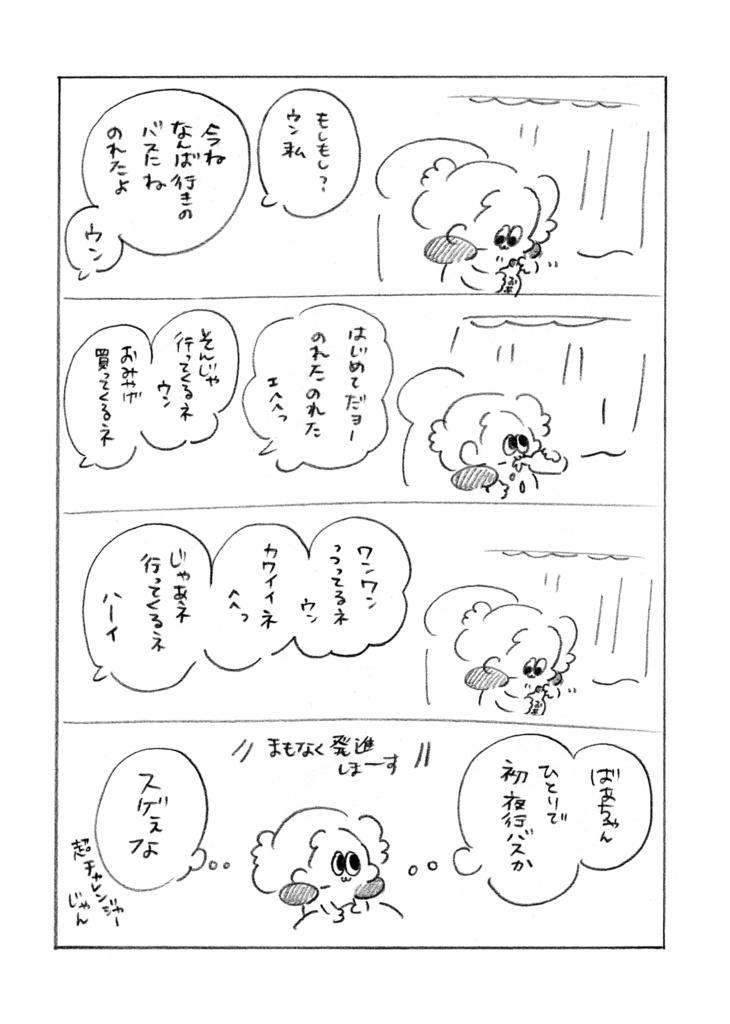 もしもし?
ウン 私
今ね
なんば行きの
バスにね
のれたよ
ウン
はじめてだヨー
のれたのれた
エヘヘっ
そんじゃ
行ってくるネ
ウン
おみやげ
買ってくるネ
ワンワン
つってるネ
ウン
カワイイネ
へへっ
じゃあネ
行ってくるネ
ハーイ
ばあちゃん
ひとりで
初夜行バスか
まもなく発進
しまーす
スゲぇな
超チャレンジャー
じゃん